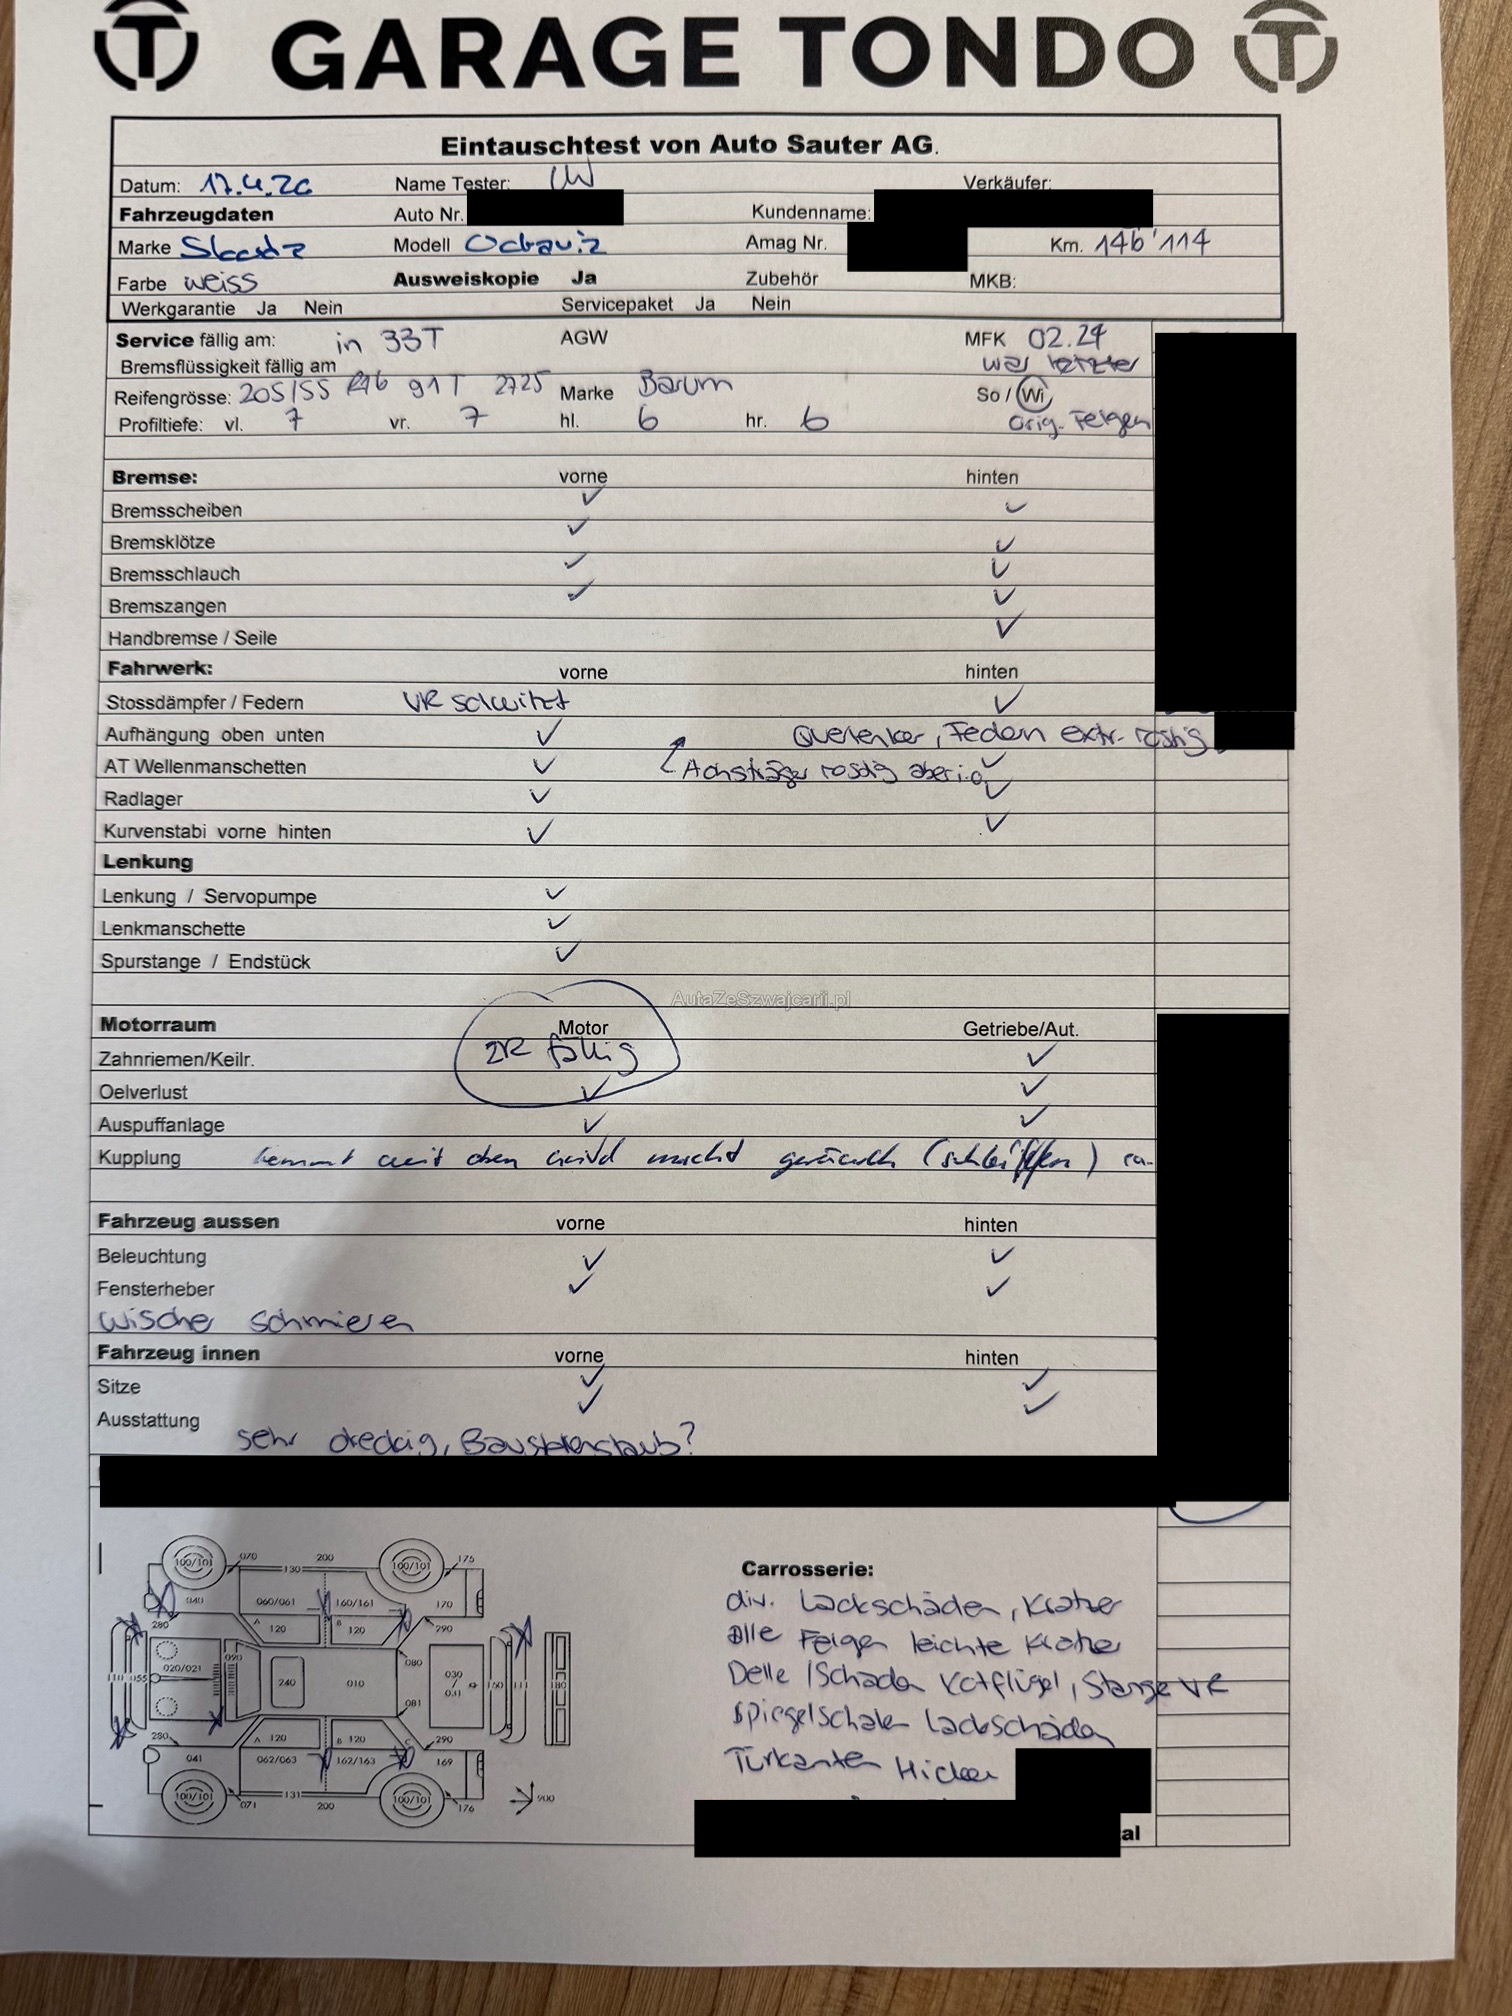 GARAGE TONDO
Eintauschtest von Auto Sauter AG.
Datum: 17.4.26 Name Tester: Verkäufer:
Fahrzeugdaten Auto Nr. Kundenname:
Marke Skoda Modell Octavia Amag Nr. Km. 146'114
Farbe weiss Ausweiskopie Ja Zubehör MKB:
Werkgarantie Ja Nein Servicepaket Ja Nein
Service fällig am: in 33T AGW MFK 02.24
Bremsflüssigkeit fällig am war letzter
Reifengrösse: 205/55 R16 91T 2725 Marke Barum So / Wi
Profiltiefe: vl. 7 vr. 7 hl. 6 hr. 6 orig. Felgen
Bremse: vorne hinten
Bremsscheiben ✓ ✓
Bremsklötze ✓ ✓
Bremsschlauch ✓ ✓
Bremszangen ✓ ✓
Handbremse / Seile ✓
Fahrwerk: vorne hinten
Stossdämpfer / Federn VR schwitzt ✓
Aufhängung oben unten ✓ Querlenker, Federn extr. rostig
AT Wellenmanschetten ✓ Achsträger rostig aber i.o. ✓
Radlager ✓ ✓
Kurvenstabi vorne hinten ✓ ✓
Lenkung
Lenkung / Servopumpe ✓
Lenkmanschette ✓
Spurstange / Endstück ✓
AutaZeSzwajcarii.pl
Motorraum Motor Getriebe/Aut.
Zahnriemen/Keilr. ZR fällig ✓
Oelverlust ✓ ✓
Auspuffanlage ✓ ✓
Kupplung kommt weit oben und macht geräusch (schleiffen)
Fahrzeug aussen vorne hinten
Beleuchtung ✓ ✓
Fensterheber ✓ ✓
Wischer schmieren
Fahrzeug innen vorne hinten
Sitze ✓ ✓
Ausstattung ✓ ✓
sehr dreckig, Baustellenstaub?
Carrosserie:
div. Lackschäden, Kratzer
alle Felgen leichte Kratzer
Delle / Schaden Kotflügel, Stange VR
Spiegelschalen Lackschäden
Türkanten Hicke
al
100/101 070 200 130 100/101 175
040 060/061 160/161 170
280 A 120 B 120 290
110 055 020/021 090 240 010 080 030 / 031 150 111 180
081
280 A 120 B 120 C 290
041 062/063 162/163 169
100/101 071 131 200 100/101 176 900